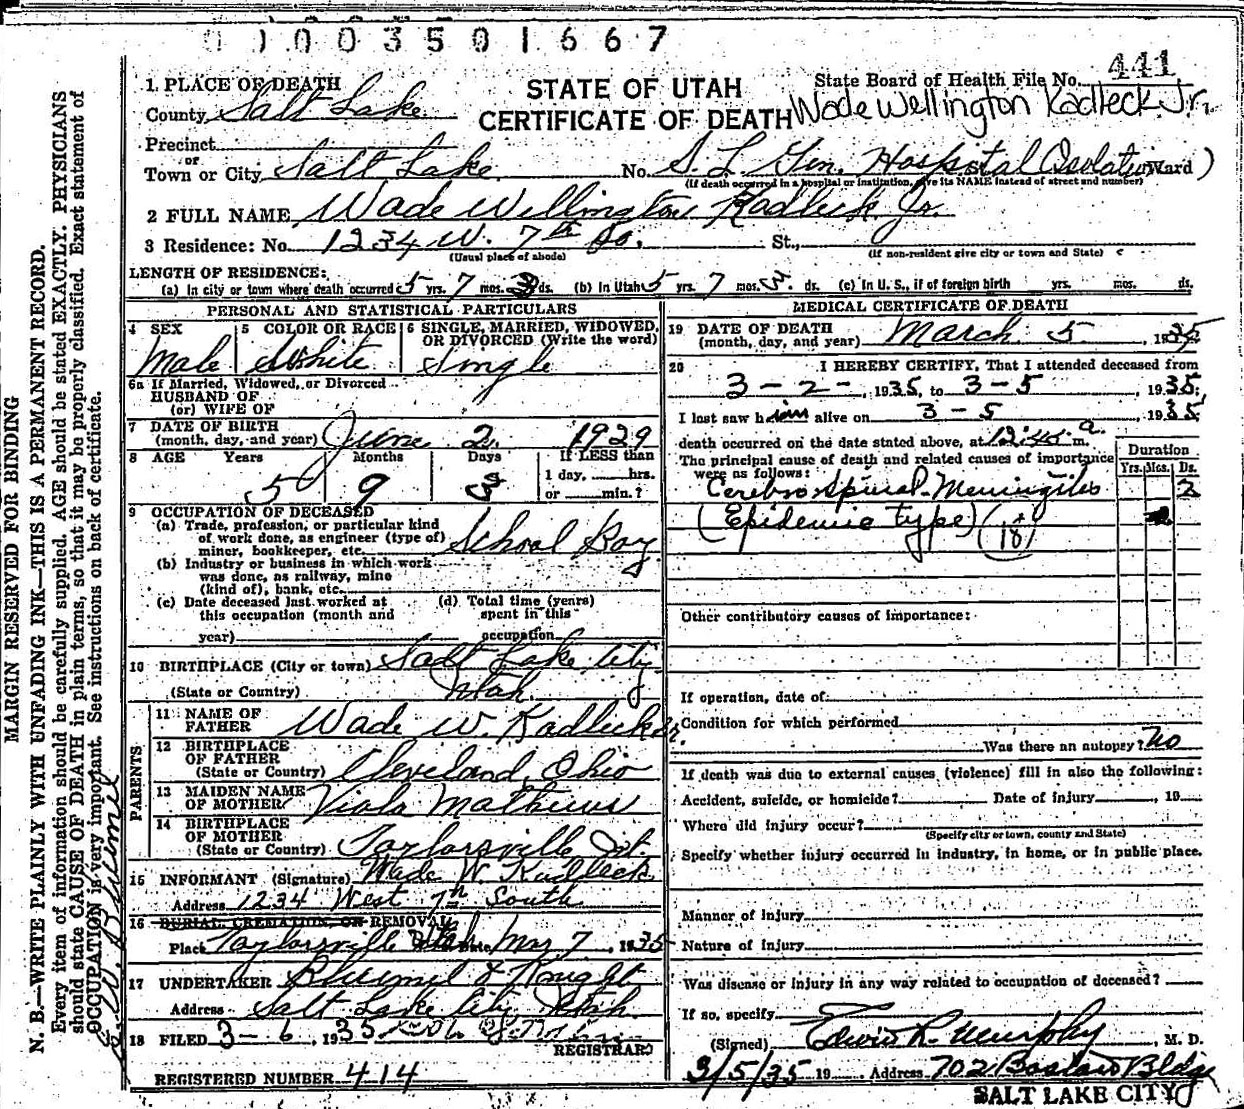 0 1 0 0 3 5 0 1 6 6 7
1. PLACE OF DEATH
STATE OF UTAH
CERTIFICATE OF DEATH
State Board of Health File No. 441
Wade Wellington Kadleck Jr.
County Salt Lake
Precinct
or
Town or City Salt Lake No. S. L. Gen. Hospital (Isolation Ward)
(If death occurred in a hospital or institution, give its NAME instead of street and number)
2 FULL NAME Wade Wellington Kadleck Jr.
3 Residence: No. 1234 W. 7th So. St.,
(Usual place of abode) (If non-resident give city or town and State)
LENGTH OF RESIDENCE:
(a) In city or town where death occurred 5 yrs. 7 mos. 3 ds. (b) In Utah 5 yrs. 7 mos. 3 ds. (c) In U. S., if of foreign birth yrs. mos. ds.
PERSONAL AND STATISTICAL PARTICULARS
4 SEX Male
5 COLOR OR RACE White
6 SINGLE, MARRIED, WIDOWED, OR DIVORCED (Write the word) Single
6a If Married, Widowed, or Divorced
HUSBAND OF
(or) WIFE OF
7 DATE OF BIRTH
(month, day, and year) June 2 1929
8 AGE Years Months Days If LESS than
5 9 3 1 day, hrs.
or min.?
9 OCCUPATION OF DECEASED
(a) Trade, profession, or particular kind
of work done, as engineer (type of)
miner, bookkeeper, etc. School Boy
(b) Industry or business in which work
was done, as railway, mine
(kind of), bank, etc.
(c) Date deceased last worked at
this occupation (month and
year)
(d) Total time (years)
spent in this
occupation
10 BIRTHPLACE (City or town) Salt Lake City
(State or Country) Utah
PARENTS
11 NAME OF
FATHER Wade W. Kadleck Sr.
12 BIRTHPLACE
OF FATHER
(State or Country) Cleveland, Ohio
13 MAIDEN NAME
OF MOTHER Viola Mathews
14 BIRTHPLACE
OF MOTHER
(State or Country) Taylorsville Ut.
15 INFORMANT (Signature) Wade W. Kadleck
Address 1234 West 7th South
16 BURIAL, CREMATION, OR REMOVAL
Place Taylorsville Utah Date Mar 7, 1935
17 UNDERTAKER & Knight
Address Salt Lake City Utah
18 FILED 3-6, 1935
REGISTRAR
REGISTERED NUMBER 414
MEDICAL CERTIFICATE OF DEATH
19 DATE OF DEATH
(month, day, and year) March 5, 1935
20 I HEREBY CERTIFY, That I attended deceased from
3-2-, 1935, to 3-5, 1935;
I last saw him alive on 3-5, 1935,
death occurred on the date stated above, at 12:40 a. m.
The principal cause of death and related causes of importance
were as follows:
Duration
Yrs. Mos. Ds.
Cerebro Spinal Meningitis 2
(Epidemic type) (18)
Other contributory causes of importance:
If operation, date of
Condition for which performed
Was there an autopsy? No
If death was due to external causes (violence) fill in also the following:
Accident, suicide, or homicide? Date of injury, 19
Where did injury occur?
(Specify city or town, county and State)
Specify whether injury occurred in industry, in home, or in public place.
Manner of injury
Nature of injury
Was disease or injury in any way related to occupation of deceased?
If so, specify
(Signed) Edwin R. Murphy, M. D.
3/5/35 19 Address 702 Boston Bldg
SALT LAKE CITY
MARGIN RESERVED FOR BINDING
N. B.—WRITE PLAINLY WITH UNFADING INK—THIS IS A PERMANENT RECORD.
Every item of information should be carefully supplied. AGE should be stated EXACTLY. PHYSICIANS
should state CAUSE OF DEATH in plain terms, so that it may be properly classified. Exact statement of
OCCUPATION is very important. See instructions on back of certificate.